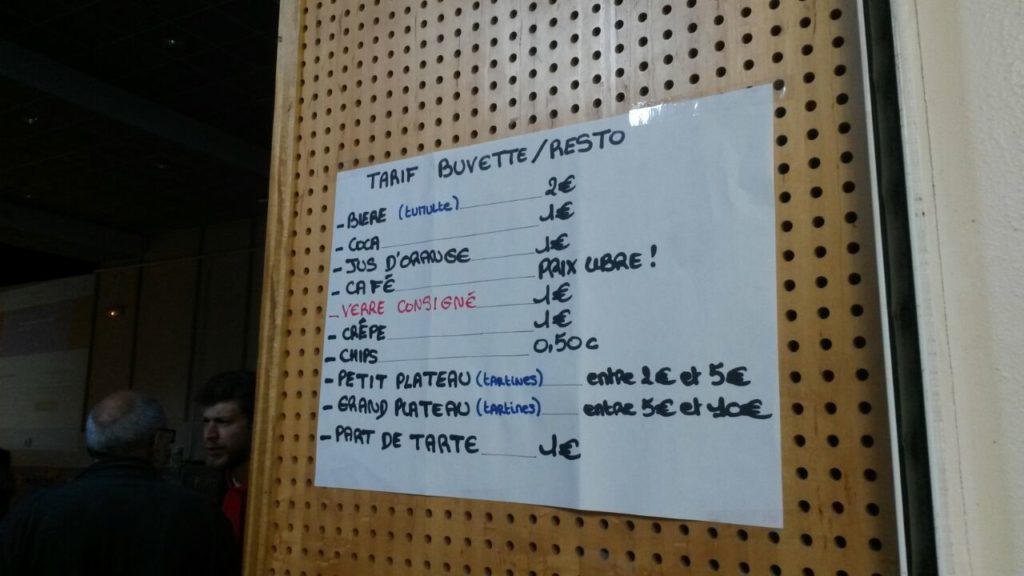 TARIF BUVETTE/RESTO
- BIERE (tumulte) 2€
- COCA 1€
- JUS D'ORANGE 1€
- CAFÉ PRIX LIBRE !
- VERRE CONSIGNÉ 1€
- CRÊPE 1€
- CHIPS 0,50 c
- PETIT PLATEAU (tartines) entre 2€ et 5€
- GRAND PLATEAU (tartines) entre 5€ et 10€
- PART DE TARTE 1€